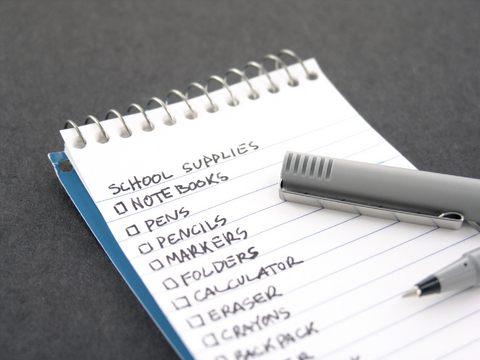 SCHOOL SUPPLIES
NOTEBOOKS
PENS
PENCILS
MARKERS
FOLDERS
CALCULATOR
ERASER
CRAYONS
BACKPACK